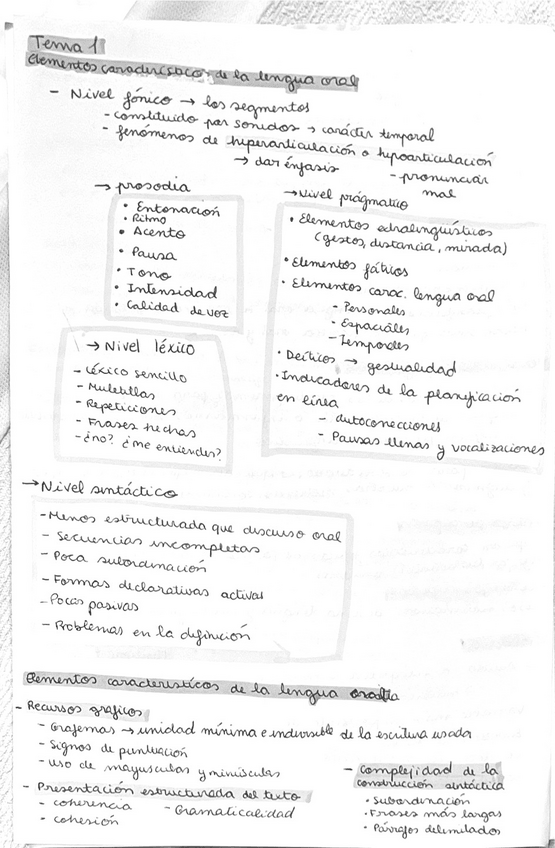 Tema 1
Elementos característicos de la lengua oral
- Nivel fónico → los segmentos
- constituido por sonidos → carácter temporal
- fenómenos de hiperarticulación o hipoarticulación
→ dar énfasis - pronunciar mal
→ prosodia
• Entonación
• Ritmo
• Acento
• Pausa
• Tono
• Intensidad
• Calidad de voz
→ Nivel prágmatico
• Elementos extralingüísticos
(gestos, distancia, mirada)
• Elementos fáticos
• Elementos carac. lengua oral
- Personales
- Espaciales
- Temporales
• Deíticos → gestualidad
• Indicadores de la planificación
en línea
- autocorrecciones
- Pausas llenas y vocalizaciones
→ Nivel léxico
- Léxico sencillo
- Muletillas
- Repeticiones
- Frases hechas
- ¿no? ¿me entiendes?
→ Nivel sintáctico
- Menos estructurada que discurso oral
- Secuencias incompletas
- Poca subordinación
- Formas declarativas activas
- Pocas pasivas
- Problemas en la definición
Elementos característicos de la lengua
- Recursos gráficos
- Grafemas → unidad mínima e indivisible de la escritura usada
- Signos de puntuación
- Uso de mayusculas y minúsculas
- Presentación estructurada del texto
- coherencia - Gramaticalidad
- cohesión
- Complejidad de la
construcción sintáctica
• Subordinación
• Frases más largas
• Párrafos delimitados